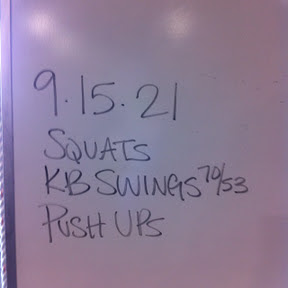 9.15.21
SQUATS
KB SWINGS 70/53
PUSH UPS